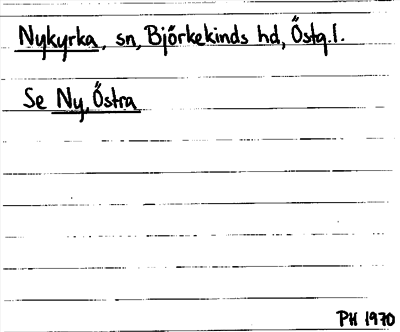 Nykyrka, sn, Björkekinds hd, Östg.l.
Se Ny, Östra
PH 1970